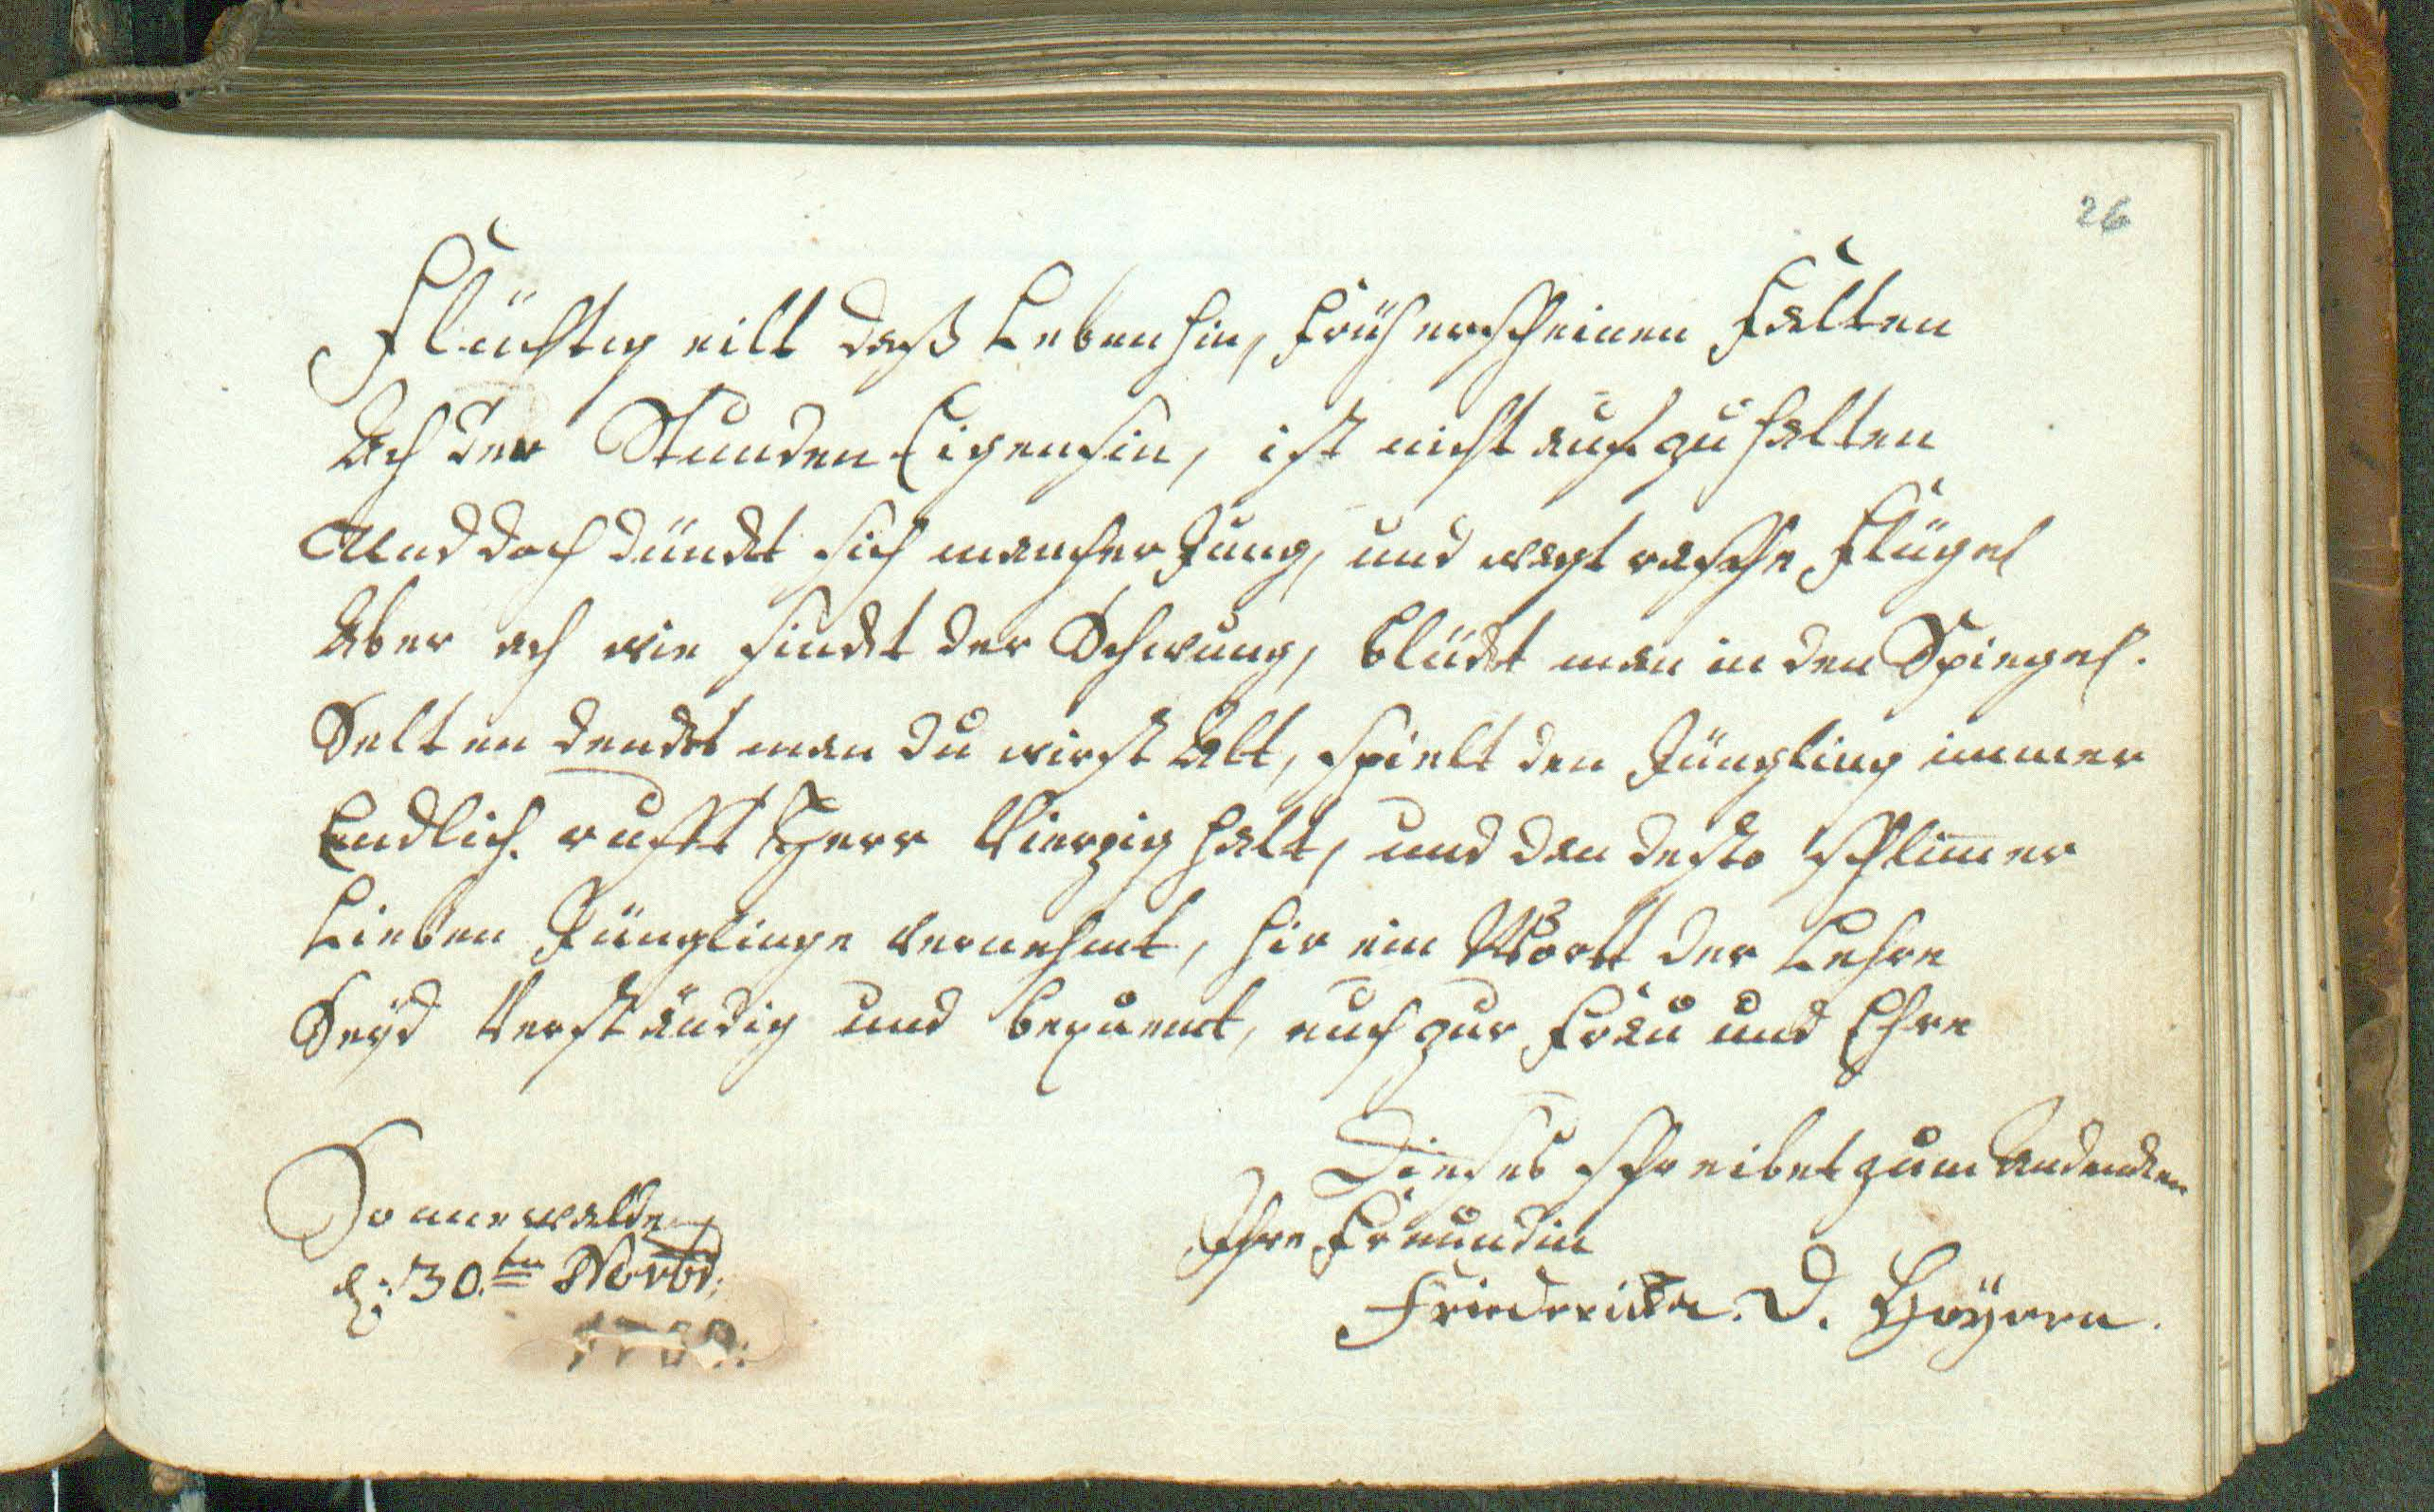 26
Flüchtig eilt daß Leben hin, früh erscheinen Falten
Ach der Stunden Eigensin, ist nicht aufzuhalten
Und doch dünckt sich mancher Jung, und wagt rasche Flügel
Aber ach wie sinckt der Schwung, blückt man in den Spiegel.
Selten denckt man du wirst Alt, spielt den Jüngling immer
Endlich rufft Herr Vierzig halt, und den desto schlimer
Lieben Jünglinge vernehmt, hir ein Wortt der Lehre
Seyd Verständig und bequemt, euch zur Frau und Ehre
Dieses schreibet zum Andencken
Ihre Freundin
Friedericka. D.
Sonnewalde
d: 30.ten Novbr: